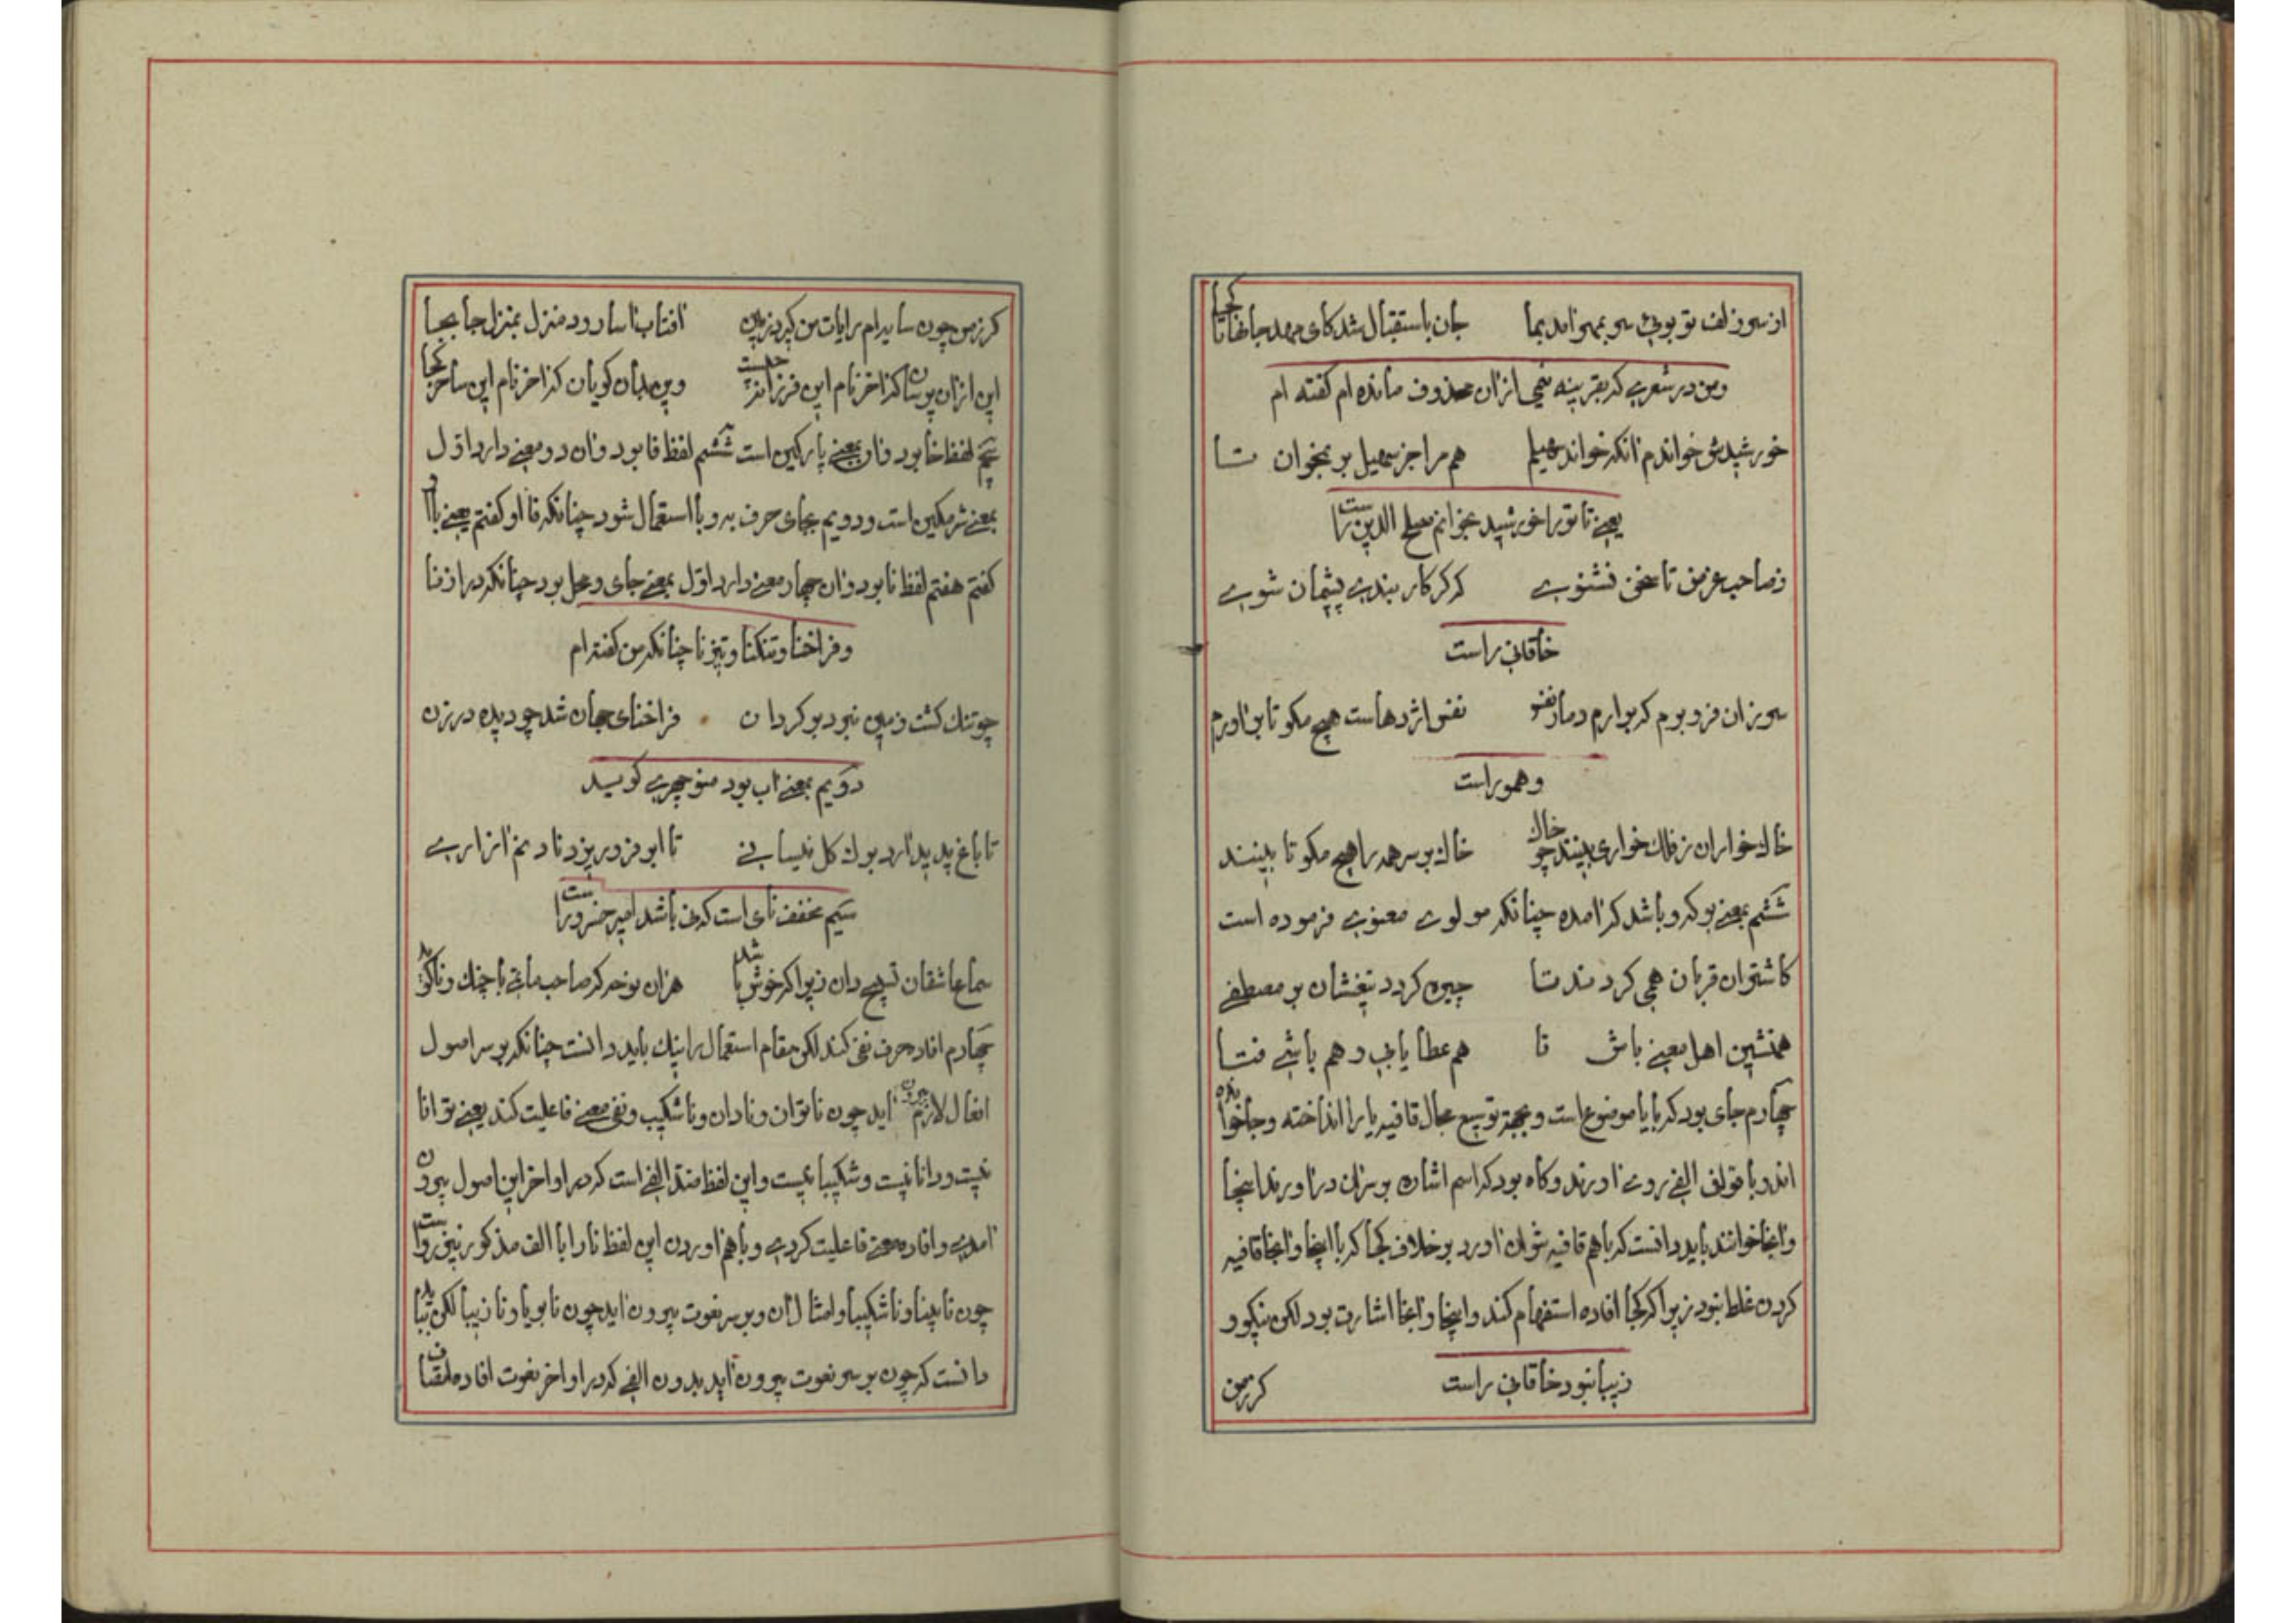 از سر زلف تو بوئی سر بمهر آمد بما جان باستقبال شد کای مهد جانها تا کجا
ومن در شعری که بقرینه شیئی ازان محذوف مانده ام گفته ام
خورشیدش خواندم آنکه خواند سهیلم هم مرا جز سهیل بر نخوان تا
یعنی تا تو را خورشید بخوانم مصلح الدین راست
ز صاحب غرض تا سخن نشنوی که گر کار بندی پشیمان شوی
خاقانی راست
سر بزان فرو برم که برارم دمار نفس نفس اژدهاست هیچ مگو تا براورم
وهمو راست
خاک خواران ز فلک خواری بینند چو خاک خاک بر سر همه را هیچ مگو تا بینند
ششم بمعنی بوکه و باشد که آمده چنانکه مولوی معنوی فرموده است
کاشتران قربان همی کردند تا چیره گردد تیغشان بر مصطفی
همنشین اهل معنی باش تا هم عطا یابی و هم باشی فتا
چهارم جای بود که با یا موضوع است و بجهة توسیع مجال قافیه یا را انداخته و جا خوانده
اند و با قولف الفی روی آورند وگاه بود که اسم اشاره بر سران درآورند اینجا
وآنجا خوانند باید دانست که باهم قافیه نتوان آورد بر خلاف کجا که با اینجا وآنجا قافیه
کردن غلط نبود زیرا که کجا افاده استفهام کند و اینجا وآنجا اشارت بود لکن نیکو و
زیبا نبود خاقانی راست
کر زمن
کر زمن چون سایه ام رایات من گیرد زمین آفتاب آسا رود منزل بمنزل جا بجا
این ازان پرسان که آخر نام این فرزانه چیست وین بدان گویان که آخر نام این ساحر کجا
پنجم لفظ خا بود وآن بمعنی پارگین است ششم لفظ فا بود وآن دو معنی دارد اول
بمعنی شرمگین است و دویم بجای حرف به و با استعمال شود چنانکه فا او گفتم یعنی با او
گفتم هفتم لفظ نا بود وآن چهار معنی دارد اول بمعنی جای و محل بود چنانکه درازنا
و فراخنا و تنگنا و تیزنا چنانکه من گفته ام
چو تنگ گشت زمین نبرد بر گردان فراخنای جهان شد چو دیده در زن
دویم بمعنی آب بود منوچهری گوید
تا باغ پدید آرد برک گل نیسانی تا ابر فرو ریزد نا و نم آزاری
سیم مخفف نای است که نی باشد امیر خسرو راست
سماع عاشقان تسبیح دان زیرا که خوش باشد هزان نوحه که صاحب ماتمی با چنک و نا گوید
چهارم افاده حرف نفی کند لکن مقام استعمال را نیک باید دانست چنانکه بر سر اصول
افعال لازم بیرون آید چون ناتوان و نادان و ناشکیب و نفی معنی فاعلیت کند یعنی توانا
نیست و دانا نیست و شکیبا نیست و این لفظ ضد الفی است که در اواخر این اصول بیرون
آمدی و افاده معنی فاعلیت کردی و باهم آوردن این لفظ نا را با الف مذکور نیز رواست
چون نابینا و ناشکیبا و امثال آن و بر سر نعوت بیرون آید چون نابویا و نازیبا لکن بباید
دانست که چون بر سر نعوت بیرون آید بدون الفی که در اواخر نعوت افاده